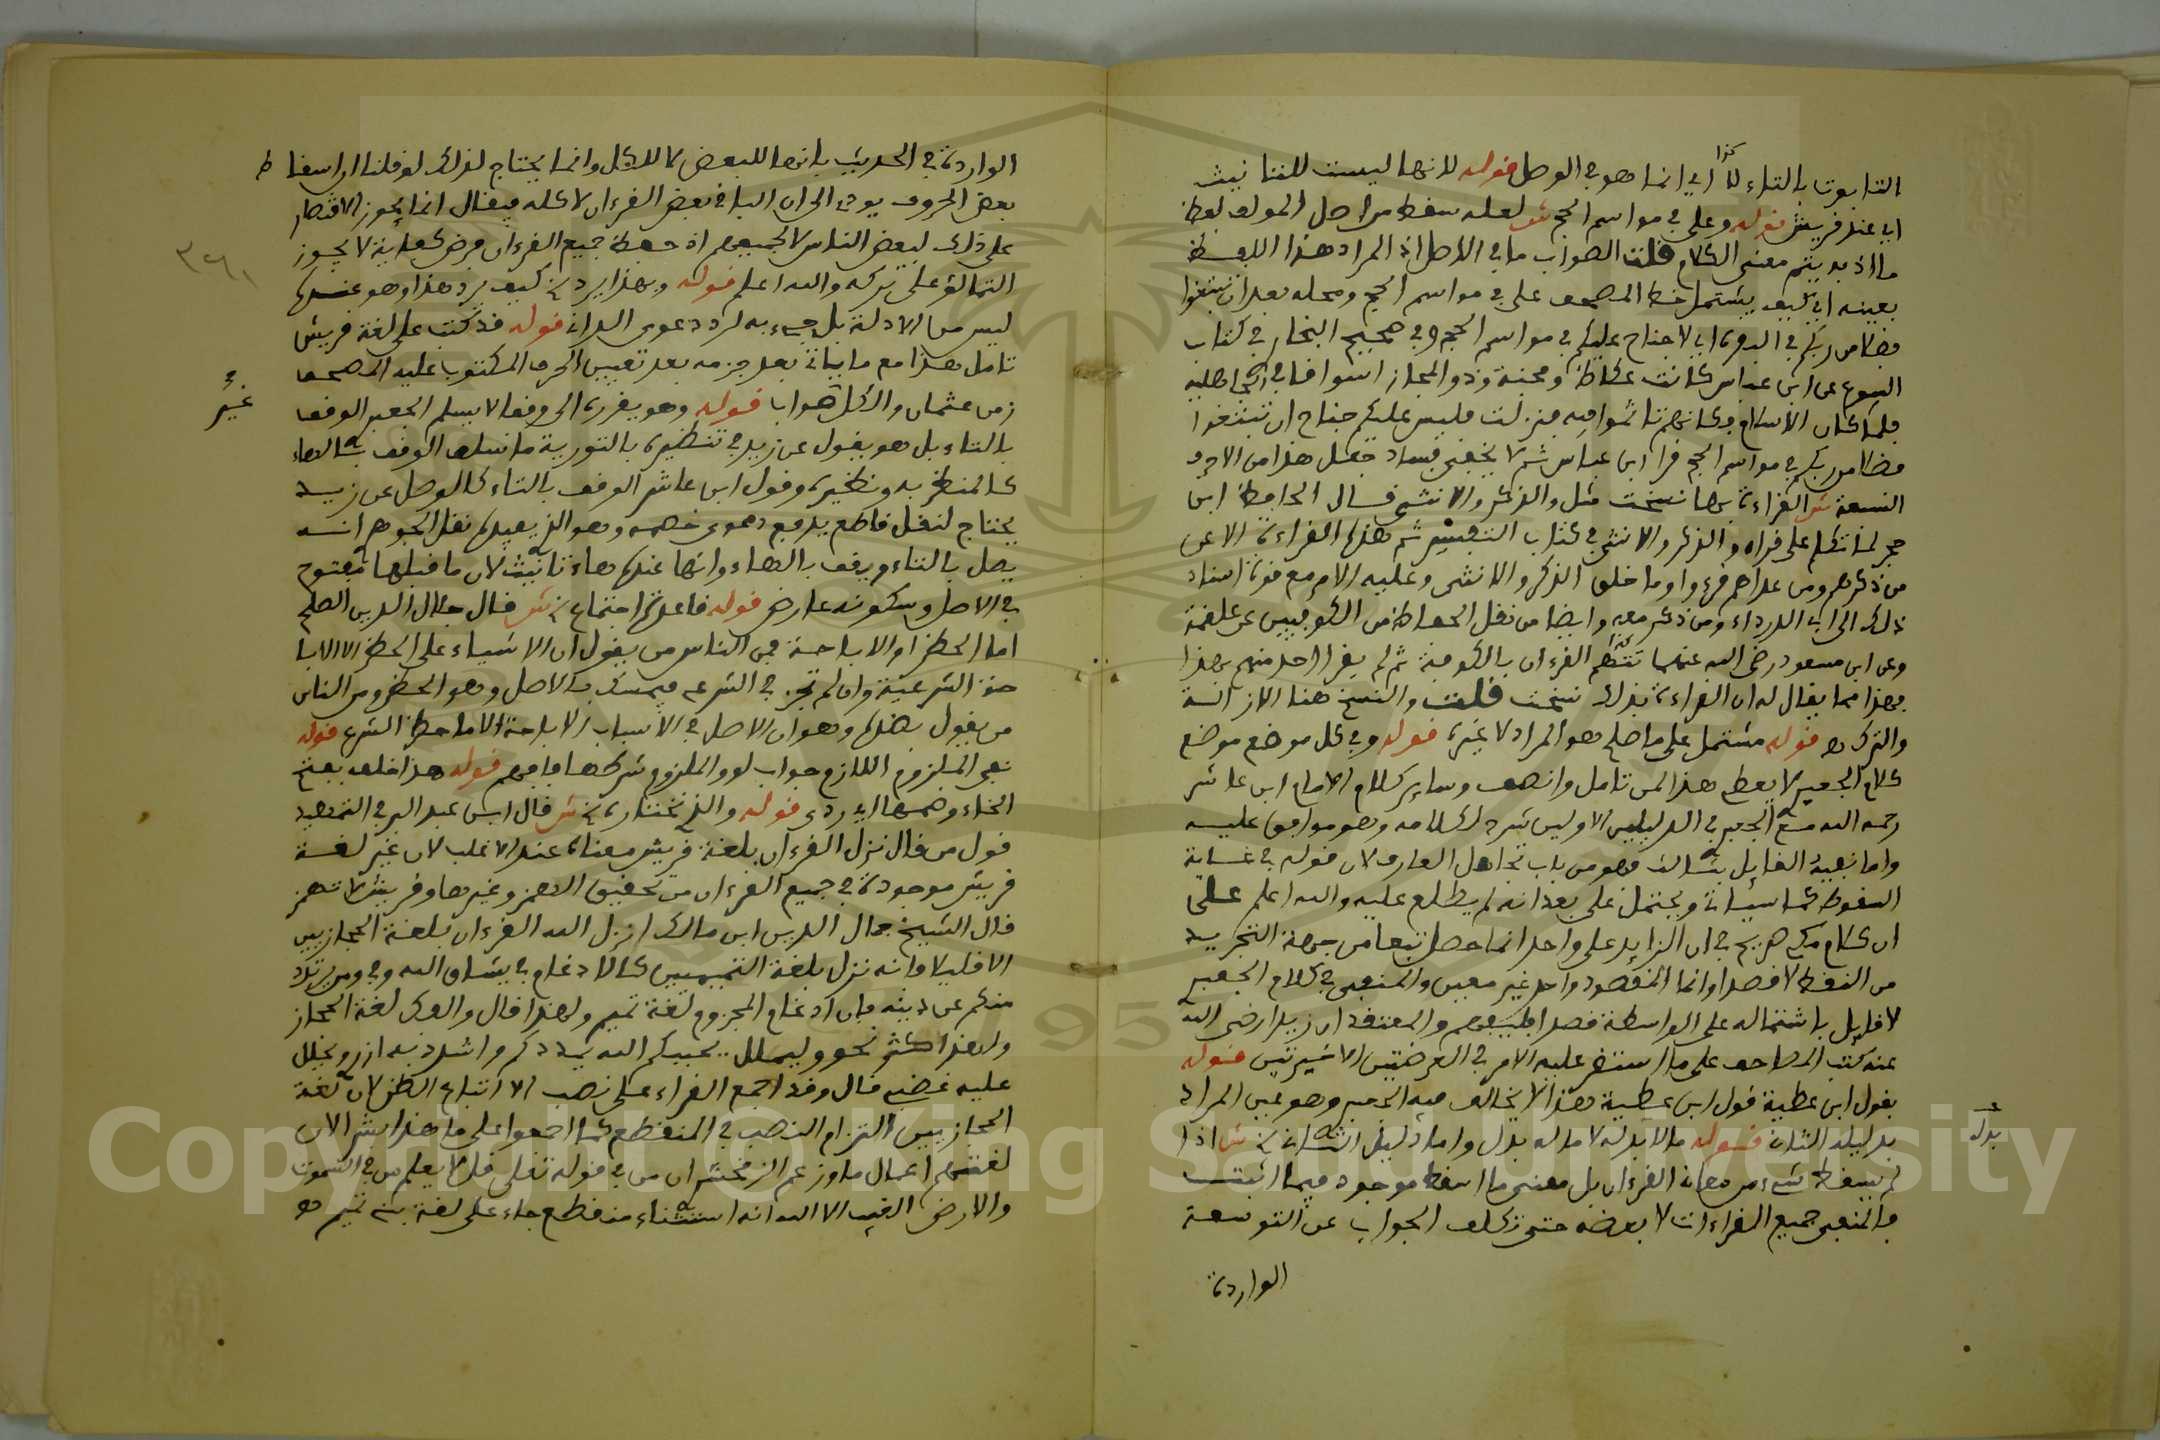 التابوت بالتاء لا اي انما هو في الوصل قوله لانها ليست للتانيث
اي عند قريش قوله وعلى في مواسم الحج ش لعله سقط من اصل المؤلف لفظ
ما اذ به يتم معنى الكلام قلت الصواب ما في الاصل اذ المراد هذا اللفظ
بعينه اي كيف يشتمل خط المصحف على في مواسم الحج ومحله بعد ان تبتغوا
فضلا من ربكم في البقرة اي لا جناح عليكم في مواسم الحج وفي صحيح البخاري في كتاب
البيوع عن ابن عباس كانت عكاظ ومجنة وذو المجاز اسواقا في الجاهلية
فلما كان الاسلام فكانهم تاثموا فيه فنزلت فليس عليكم جناح ان تبتغوا
فضلا من ربكم في مواسم الحج قرا ابن عباس ش لا يخفى فساد جعل هذا من الاحرف
السبعة ش القراءة بها نسخت مثل والذكر والانثى قال الحافظ ابن
حجر لما تكلم على قراءة والذكر والانثى في كتاب التفسير ثم هذه القراءة الا عن
من ذكر هو ومن عداهم قرءوا وما خلق الذكر والانثى وعليه الامر مع قوة اسناد
ذلك الى ابي الدرداء ومن ذكر معه وايضا من نقل الحفاظ من الكوفيين عن علقمة
وعن ابن مسعود رضي الله عنهما القرءان بالكوفة ثم لم يقرا احد منهم بهذا
فهذا مما يقال له ان القراءة بذلك نسخت قلت والنسخ هنا الازالة
والترك قوله مشتمل على ما صلح هو المراد لا غيره قوله وفي كل موضع موضع
كلام الجعبري لا يعطي هذا لمن تامل وانصف وساير كلام الامام ابن عاشر
رحمه الله مع الجعبري في الدليلين الاولين شرد لكلامه وهو موافق عليه
واما نفيه القايل بثالث فهو من باب تجاهل العارف لان قوله في غاية
السقوط كما سياتي ويحتمل على بعد انه لم يطلع عليه والله اعلم على
ان كلام مكي صريح في ان الزايد على واحد انما حصل تبعا من جهة التجريد
من النقط لا قصدا وانما المقصود واحد غير معين والمنفي في كلام الجعبري
لا قايل باشتماله على الواسطة قصدا والمعتقد ان زيدا رضي الله
عنه كتب المصاحف على ما استقر عليه الامر في العرضتين الاخيرتين قوله
يقول ابن عطية قول ابن عطية هذا لا يخالف فيه الجعبري وهو عين المراد
بدليله الثاني قوله ما لا بدله لا ما له بدل واما دليل الثاني ش اذا
لم يسقط شيء من معاني القرءان بل معنى ما اسقط موجود فيما اثبت
فالمنفي جميع القراءات لا بعضه حتى تكلف الجواب عن التوسعة
الواردة
بدله
الواردة في الحديث بانها للبعض لا للكل وانما يحتاج لذلك لو قلنا ان اسقاط
بعض الحروف يودي الى ان الباقي بعض القرءان لا كله فيقال انما يجوز الاقتصار
على ذلك لبعض الناس لا لجميعهم اذ حفظ جميع القرءان فرض كفاية لا يجوز
التمالؤ على تركه والله اعلم قوله وبهذا يرد كيف يرد هذا وهو عنده
ليس من الادلة بل جيء به لرد دعوى الداني قوله فذكتب على لغة قريش
تامل هذا مع ما ياتي بعد جزمه بعد تعيين الحرف المكتوب عليه المصحف
زمن عثمان والكل صواب قوله وهو يقرره الى وقفا لا يسلم الجعبري الوقف
بالتاء بل هو يقول عن زيد في تنظيره بالتورية ما نسلم الوقف بالهاء
كالمنظر به ونظيره وقول ابن عاشر الوقف بالتاء كالوصل عن زيد
يحتاج لنقل قاطع يدفع دعوى خصمه وهو الذي يفيده نقل الجوهري انه
يصل بالتاء ويقف بالهاء وانها عنده هاء تانيث لان ما قبلها مفتوح
في الاصل وسكونه عارض قوله قاعدة اجتماع ش قال جلال الدين المحلي
اما الحظر او الاباحة فمن الناس من يقول ان الاشياء على الحظر الا الابا
حة الشرعية وان لم تجد في الشرع فيمسك بالاصل وهو الحظر ومن الناس
من يقول بضده وهو ان الاصل في الاشياء الاباحة الا ما حظر الشرع قوله
نفي الملزوم اللازم جواب لو والملزوم شرطها فافهم قوله هذا خلف بفتح
الخاء وضمها اي ردي قوله والذي نختاره ش قال ابن عبد البر في التمهيد
قول من قال نزل القرءان بلغة قريش معناه عند الاغلب لان غير لغة
قريش موجودة في جميع القرءان من تحقيق الهمز وغيرها وقريش لا تهمز
قال الشيخ جمال الدين ابن مالك انزل الله القرءان بلغة الحجازيين
الا قليلا فانه نزل بلغة التميميين كالادغام في يشاق الله وفي ومن يرتد
منكم عن دينه فان ادغام المجزوم لغة تميم ولهذا قل والفك لغة الحجاز
ولهذا كثر نحو وليملل يحببكم الله يمددكم واشدد به ازري ويحلل
عليه غضبي قال وقد اجمع القراء على نصب الا اتباع الظن لان لغة
الحجازيين التزام النصب في المنقطع كما اجمعوا على ما هذا بشرا لان
لغتهم اعمال ما وزعم الزمخشري ان من في قوله تعلى قل لا يعلم من في السموت
والارض الغيب الا الله انه استثناء منقطع جاء على لغة بني تميم
غير